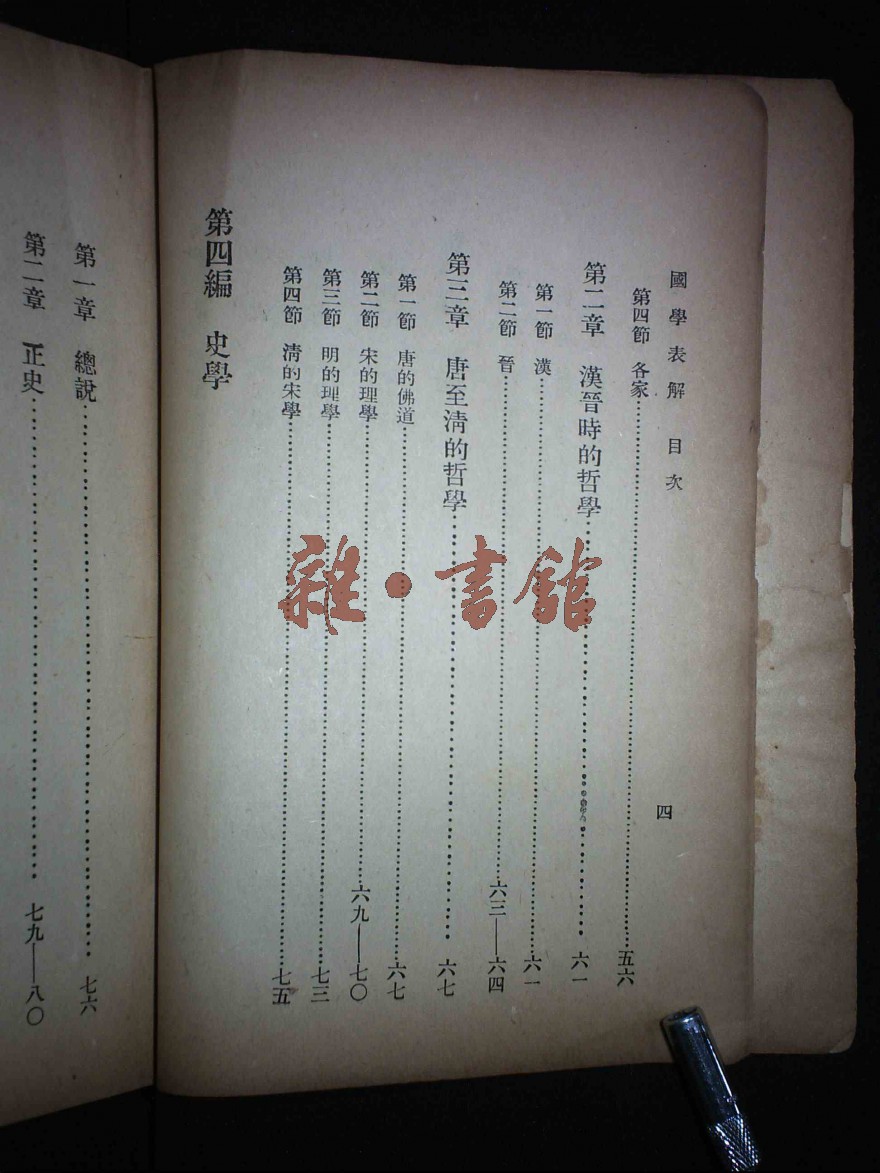 國學表解 目次
四
第四節 各家……五六
第二章 漢晉時的哲學……六一
第一節 漢……六一
第二節 晉……六三——六四
第三章 唐至淸的哲學……六七
第一節 唐的佛道……六七
第二節 宋的理學……六九——七〇
第三節 明的理學……七三
第四節 淸的宋學……七五
第四編 史學
第一章 總說……七六
第二章 正史……七九——八〇
雜·書館